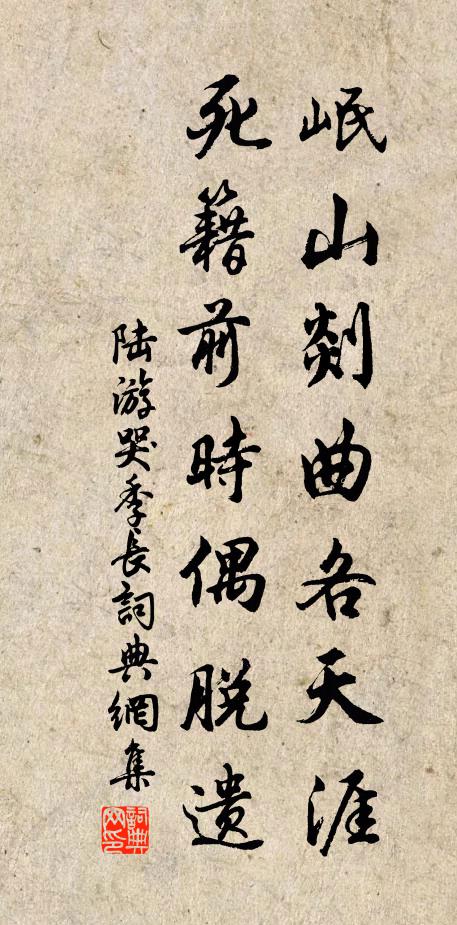 岷山剡曲各天涯
死籍前時偶脱遗
陆游哭季長詞典網集
詞典网印